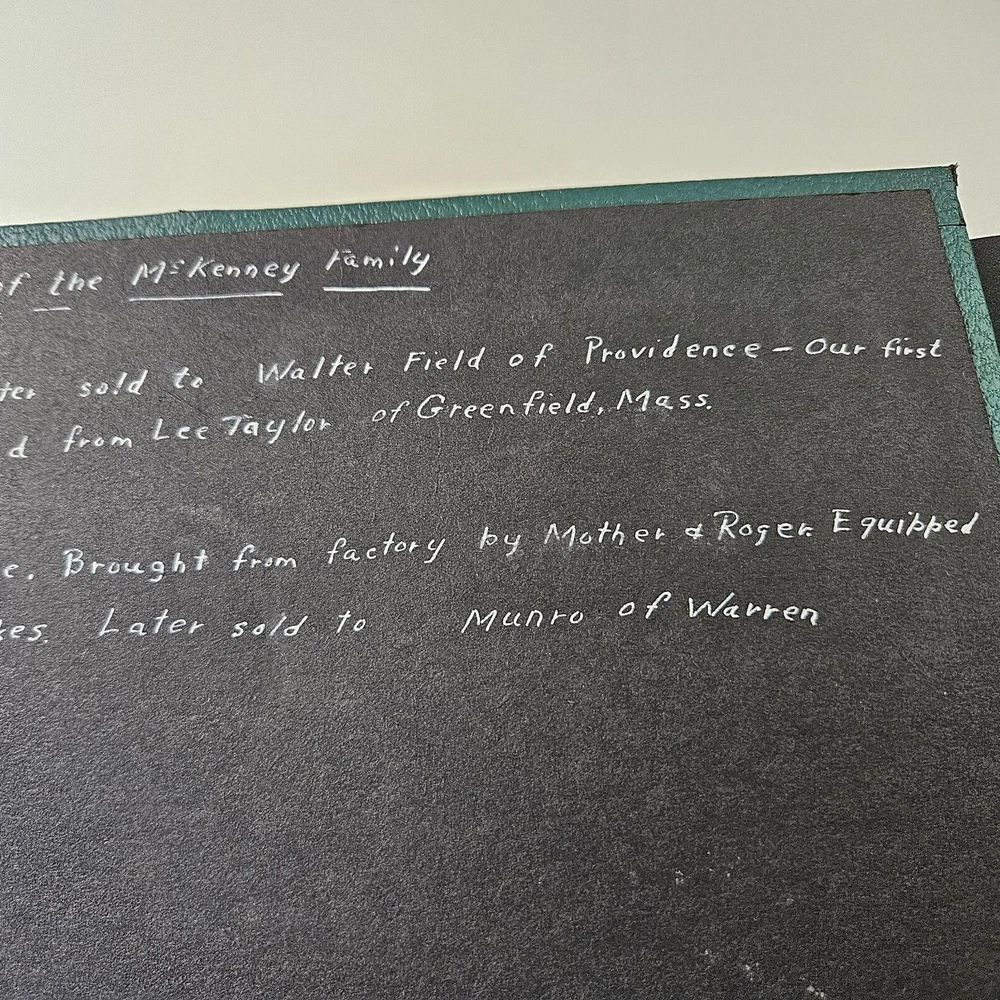 of the McKenney Family
ter sold to Walter Field of Providence - Our first
d from Lee Taylor of Greenfield, Mass.
e. Brought from factory by Mother & Roger. Equipped
kes. Later sold to Munro of Warren